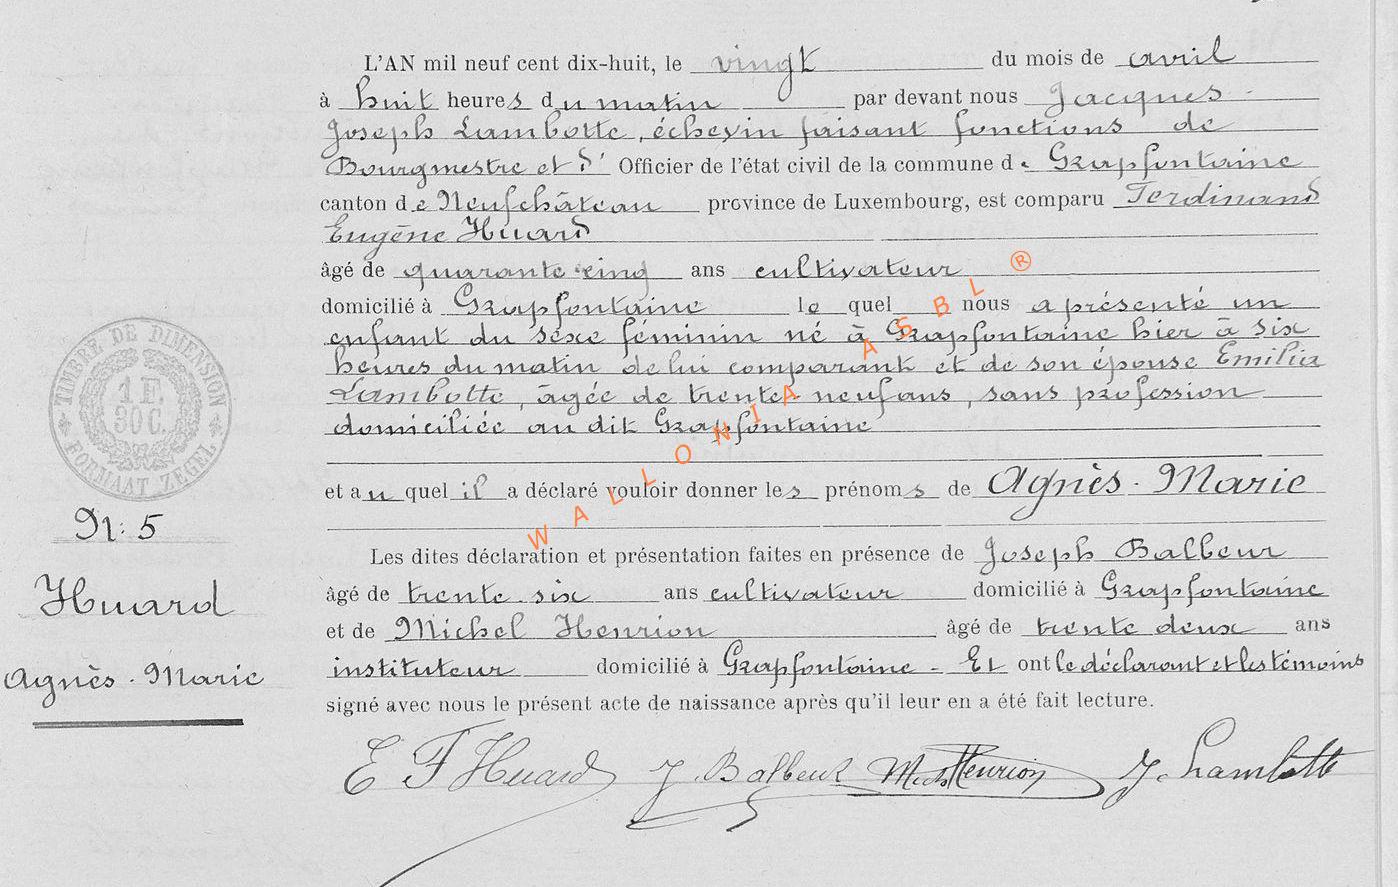 L'AN mil neuf cent dix-huit, le vingt du mois de avril
à huit heures du matin par devant nous Jacques
Joseph Lambotte, échevin faisant fonctions de
Bourgmestre et d' Officier de l'état civil de la commune de Grapfontaine
canton de Neufchâteau province de Luxembourg, est comparu Ferdinand
Eugène Huard
âgé de quarante cinq ans cultivateur
domicilié à Grapfontaine lequel nous a présenté un
enfant du sexe féminin né à Grapfontaine hier à six
heures du matin de lui comparant et de son épouse Emilia
Lambotte, âgée de trente neuf ans, sans profession
domiciliée au dit Grapfontaine
et au quel il a déclaré vouloir donner les prénoms de Agnès-Marie
Les dites déclaration et présentation faites en présence de Joseph Balbeur
âgé de trente six ans cultivateur domicilié à Grapfontaine
et de Michel Henrion âgé de trente deux ans
instituteur domicilié à Grapfontaine - Et ont le déclarant et les témoins
signé avec nous le présent acte de naissance après qu'il leur en a été fait lecture.
E F Huard J. Balbeur Mich Henrion J. Lambotte
TIMBRE DE DIMENSION
1 F.
30 C.
FORMAAT ZEGEL
N: 5
Huard
Agnès-Marie
WALLONIA ASBL ®